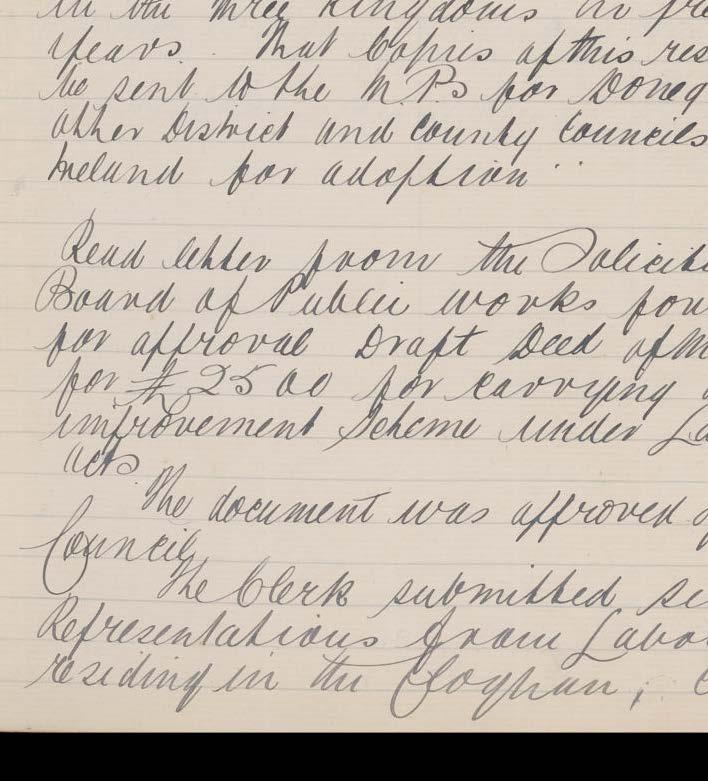 in the three Kingdoms in
years. That Copies of this res
be sent to the M.P.s for Doneg
other District and County Councils
Ireland for adoption"
Read letter from the Solicit
Board of Public works for
for approval Draft Deed of M
for £2500 for carrying
improvement Scheme under La
acts.
The document was approved
Council
The Clerk submitted
Representations from Labo
residing in the Cloghan,